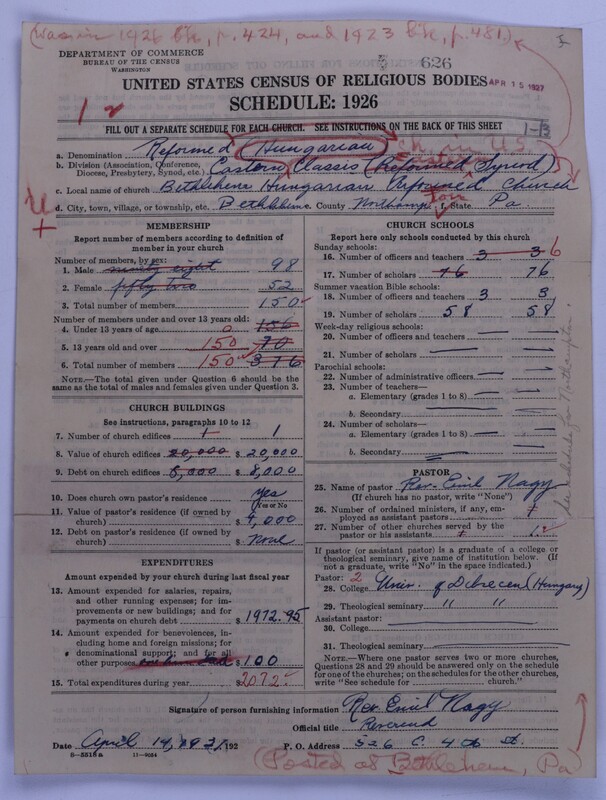 (Was in 1926 blk, p. 424, and 1923 blk, p. 481)
DEPARTMENT OF COMMERCE
BUREAU OF THE CENSUS
WASHINGTON
626
UNITED STATES CENSUS OF RELIGIOUS BODIES
APR 15 1927
SCHEDULE: 1926
FILL OUT A SEPARATE SCHEDULE FOR EACH CHURCH. SEE INSTRUCTIONS ON THE BACK OF THIS SHEET
1-13
a. Denomination Reformed (Hungarian) Ch. in U.S.
b. Division (Association, Conference, Diocese, Presbytery, Synod, etc.) Eastern Classis (Reformed Synod)
c. Local name of church Bethlehem Hungarian Reformed Church
d. City, town, village, or township, etc. Bethlehem e. County Northampton f. State Pa.
MEMBERSHIP
Report number of members according to definition of member in your church
Number of members, by sex:
1. Male ninety eight 98
2. Female fifty two 52
3. Total number of members 150
Number of members under and over 13 years old:
4. Under 13 years of age 0 156
5. 13 years old and over 150 70
6. Total number of members 150 376
NOTE.—The total given under Question 6 should be the same as the total of males and females given under Question 3.
CHURCH BUILDINGS
See instructions, paragraphs 10 to 12
7. Number of church edifices 1 1
8. Value of church edifices 20,000 $ 20,000
9. Debt on church edifices 8,000 $ 8,000
10. Does church own pastor's residence yes
(Yes or No)
11. Value of pastor's residence (if owned by church) $ 4,000
12. Debt on pastor's residence (if owned by church) $ none
EXPENDITURES
Amount expended by your church during last fiscal year
13. Amount expended for salaries, repairs, and other running expenses; for improvements or new buildings; and for payments on church debt $ 1972.95
14. Amount expended for benevolences, including home and foreign missions; for denominational support; and for all other purposes $ 100
15. Total expenditures during year $ 2072
CHURCH SCHOOLS
Report here only schools conducted by this church
Sunday schools:
16. Number of officers and teachers 3 3 6
17. Number of scholars 76 76
Summer vacation Bible schools:
18. Number of officers and teachers 3 3
19. Number of scholars 58 58
Week-day religious schools:
20. Number of officers and teachers
21. Number of scholars
Parochial schools:
22. Number of administrative officers
23. Number of teachers—
a. Elementary (grades 1 to 8)
b. Secondary
24. Number of scholars—
a. Elementary (grades 1 to 8)
b. Secondary
PASTOR
25. Name of pastor Rev. Emil Nagy
(If church has no pastor, write "None")
26. Number of ordained ministers, if any, employed as assistant pastors
27. Number of other churches served by the pastor or his assistants 1
If pastor (or assistant pastor) is a graduate of a college or theological seminary, give name of institution below. (If not a graduate, write "No" in the space indicated.)
Pastor: 2
28. College Univ. of Debrecen (Hungary)
29. Theological seminary " "
Assistant pastor:
30. College
31. Theological seminary
NOTE.—Where one pastor serves two or more churches, Questions 28 and 29 should be answered only on the schedule for one of the churches; on the schedules for the other churches, write "See schedule for ........ church."
See schedule for Northampton
Signature of person furnishing information Rev. Emil Nagy
Official title Reverend
Date April 14, 1927, 192
P. O. Address 526 E. 4th St.
8—5518a 11—9034
(Posted at Bethlehem, Pa)